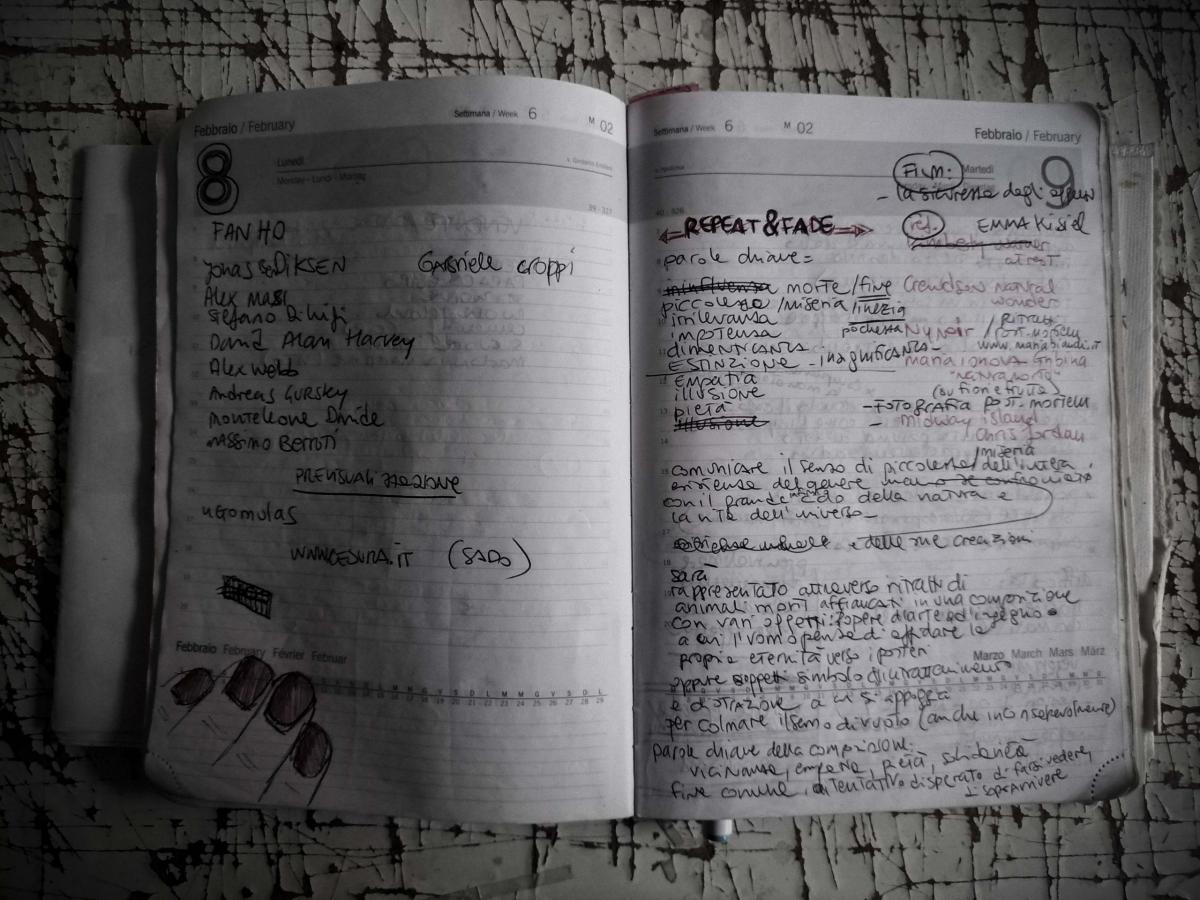 Febbraio / February
Settimana / Week 6 M 02
8
Lunedì
Monday - Lundi - Montag
FAN HO
Jonas BENDIKSEN Gabriele croppi
Alex Masi
Stefano
David Alan Harvey
Alex Webb
Andreas Gursky
Monteleone Davide
Massimo Berruti
UGO MULAS
WWW.CESURA.IT
Febbraio February Février Februar
Settimana / Week 6 M 02
Febbraio / February
FILM: Martedì
9
- la sicurezza degli oggetti
REPEAT & FADE
rif. EMMA KISIEL
at rest
parole chiave=
ininfluenza morte / fine Crewdson natural
wonder
piccolezza / miseria / inezia
irrilevanza
Ritratti
impotenza pochezza / Post-mortem
dimenticanza
ESTINZIONE - insignificanza -
"natura morta"
empatia
(su fiori e frutta)
illusione
pietà - Fotografia post-mortem
illusione - Midway island
Chris Jordan
/ miseria
comunicare il senso di piccolezza dell'intera
esistenza del genere umano
con il grande ciclo della natura e
la vita dell'universo -
e delle sue creazioni
sarà
rappresentato attraverso ritratti di
animali morti affiancati in una composizione
con vari oggetti: opere d'arte ed ingegno
a cui l'uomo pensa di affidare la
propria eternità verso i posteri
Marzo March Mars März
oppure oggetti simbolo di intrattenimento
e distrazione a cui si appoggia
per colmare il senso di vuoto (anche inconsapevolmente)
parole chiave della composizione:
vicinanza, empatia, pietà, solidarietà
fine comune, tentativo disperato di farsi vedere,
di sopravvivere